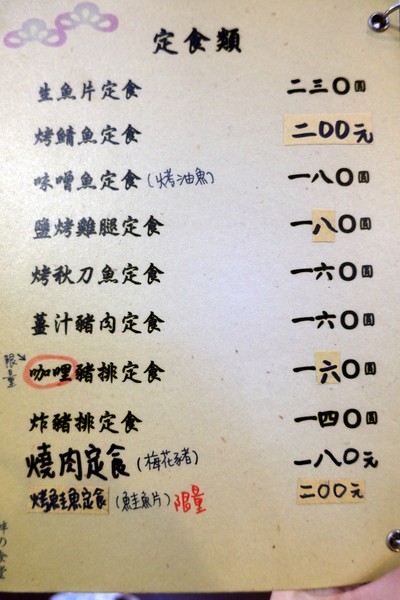 定食類
生魚片定食 二三〇圓
烤鯖魚定食 二〇〇元
味噌魚定食(烤油魚) 一八〇圓
鹽烤雞腿定食 一八〇圓
烤秋刀魚定食 一六〇圓
薑汁豬肉定食 一六〇圓
限量 咖哩豬排定食 一六〇圓
炸豬排定食 一四〇圓
燒肉定食(梅花豬) 一八〇元
烤鮭魚定食(鮭魚片)限量 二〇〇元
の食堂